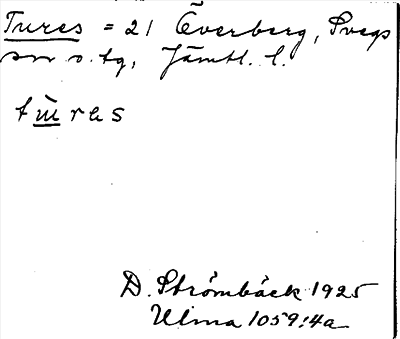 Tures = 21 Överberg, Svegs
sn o. tg, Jämtl. l.
tu̲res
D. Strömbäck 1925
Ulma 1059:4a